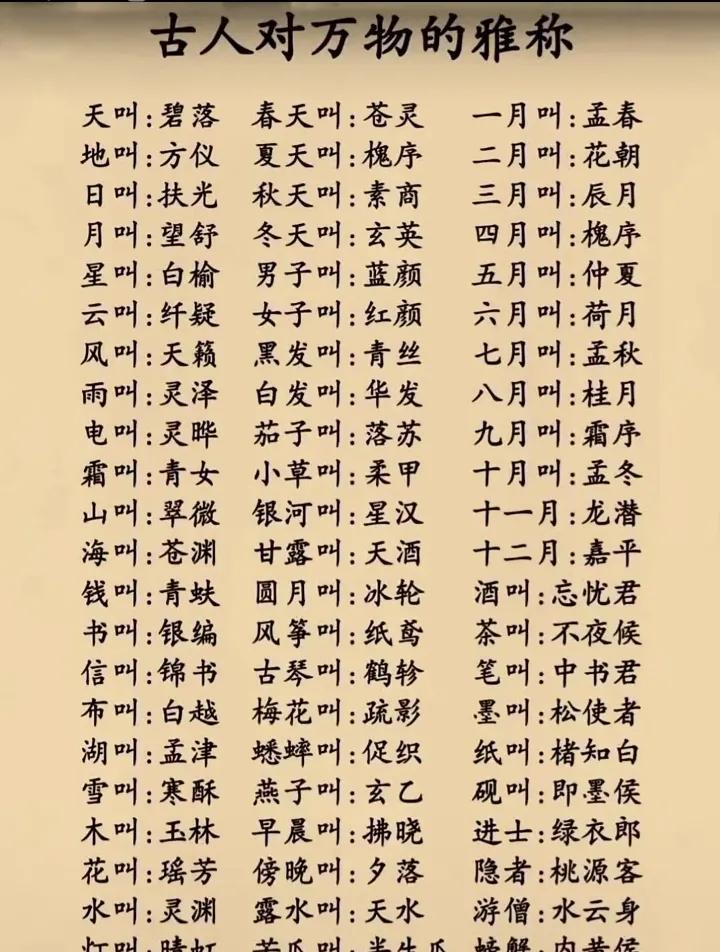 古人对万物的雅称
天叫:碧落 春天叫:苍灵 一月叫:孟春
地叫:方仪 夏天叫:槐序 二月叫:花朝
日叫:扶光 秋天叫:素商 三月叫:辰月
月叫:望舒 冬天叫:玄英 四月叫:槐序
星叫:白榆 男子叫:蓝颜 五月叫:仲夏
云叫:纤疑 女子叫:红颜 六月叫:荷月
风叫:天籁 黑发叫:青丝 七月叫:孟秋
雨叫:灵泽 白发叫:华发 八月叫:桂月
电叫:灵晔 茄子叫:落苏 九月叫:霜序
霜叫:青女 小草叫:柔甲 十月叫:孟冬
山叫:翠微 银河叫:星汉 十一月:龙潜
海叫:苍渊 甘露叫:天酒 十二月:嘉平
钱叫:青蚨 圆月叫:冰轮 酒叫:忘忧君
书叫:银编 风筝叫:纸鸢 茶叫:不夜候
信叫:锦书 古琴叫:鹤轸 笔叫:中书君
布叫:白越 梅花叫:疏影 墨叫:松使者
湖叫:孟津 蟋蟀叫:促织 纸叫:楮知白
雪叫:寒酥 燕子叫:玄乙 砚叫:即墨侯
木叫:玉林 早晨叫:拂晓 进士:绿衣郎
花叫:瑶芳 傍晚叫:夕落 隐者:桃源客
水叫:灵渊 露水叫:天水 游僧:水云身
灯叫:晴虹 苦瓜叫:半生瓜 螃蟹:内黄侯